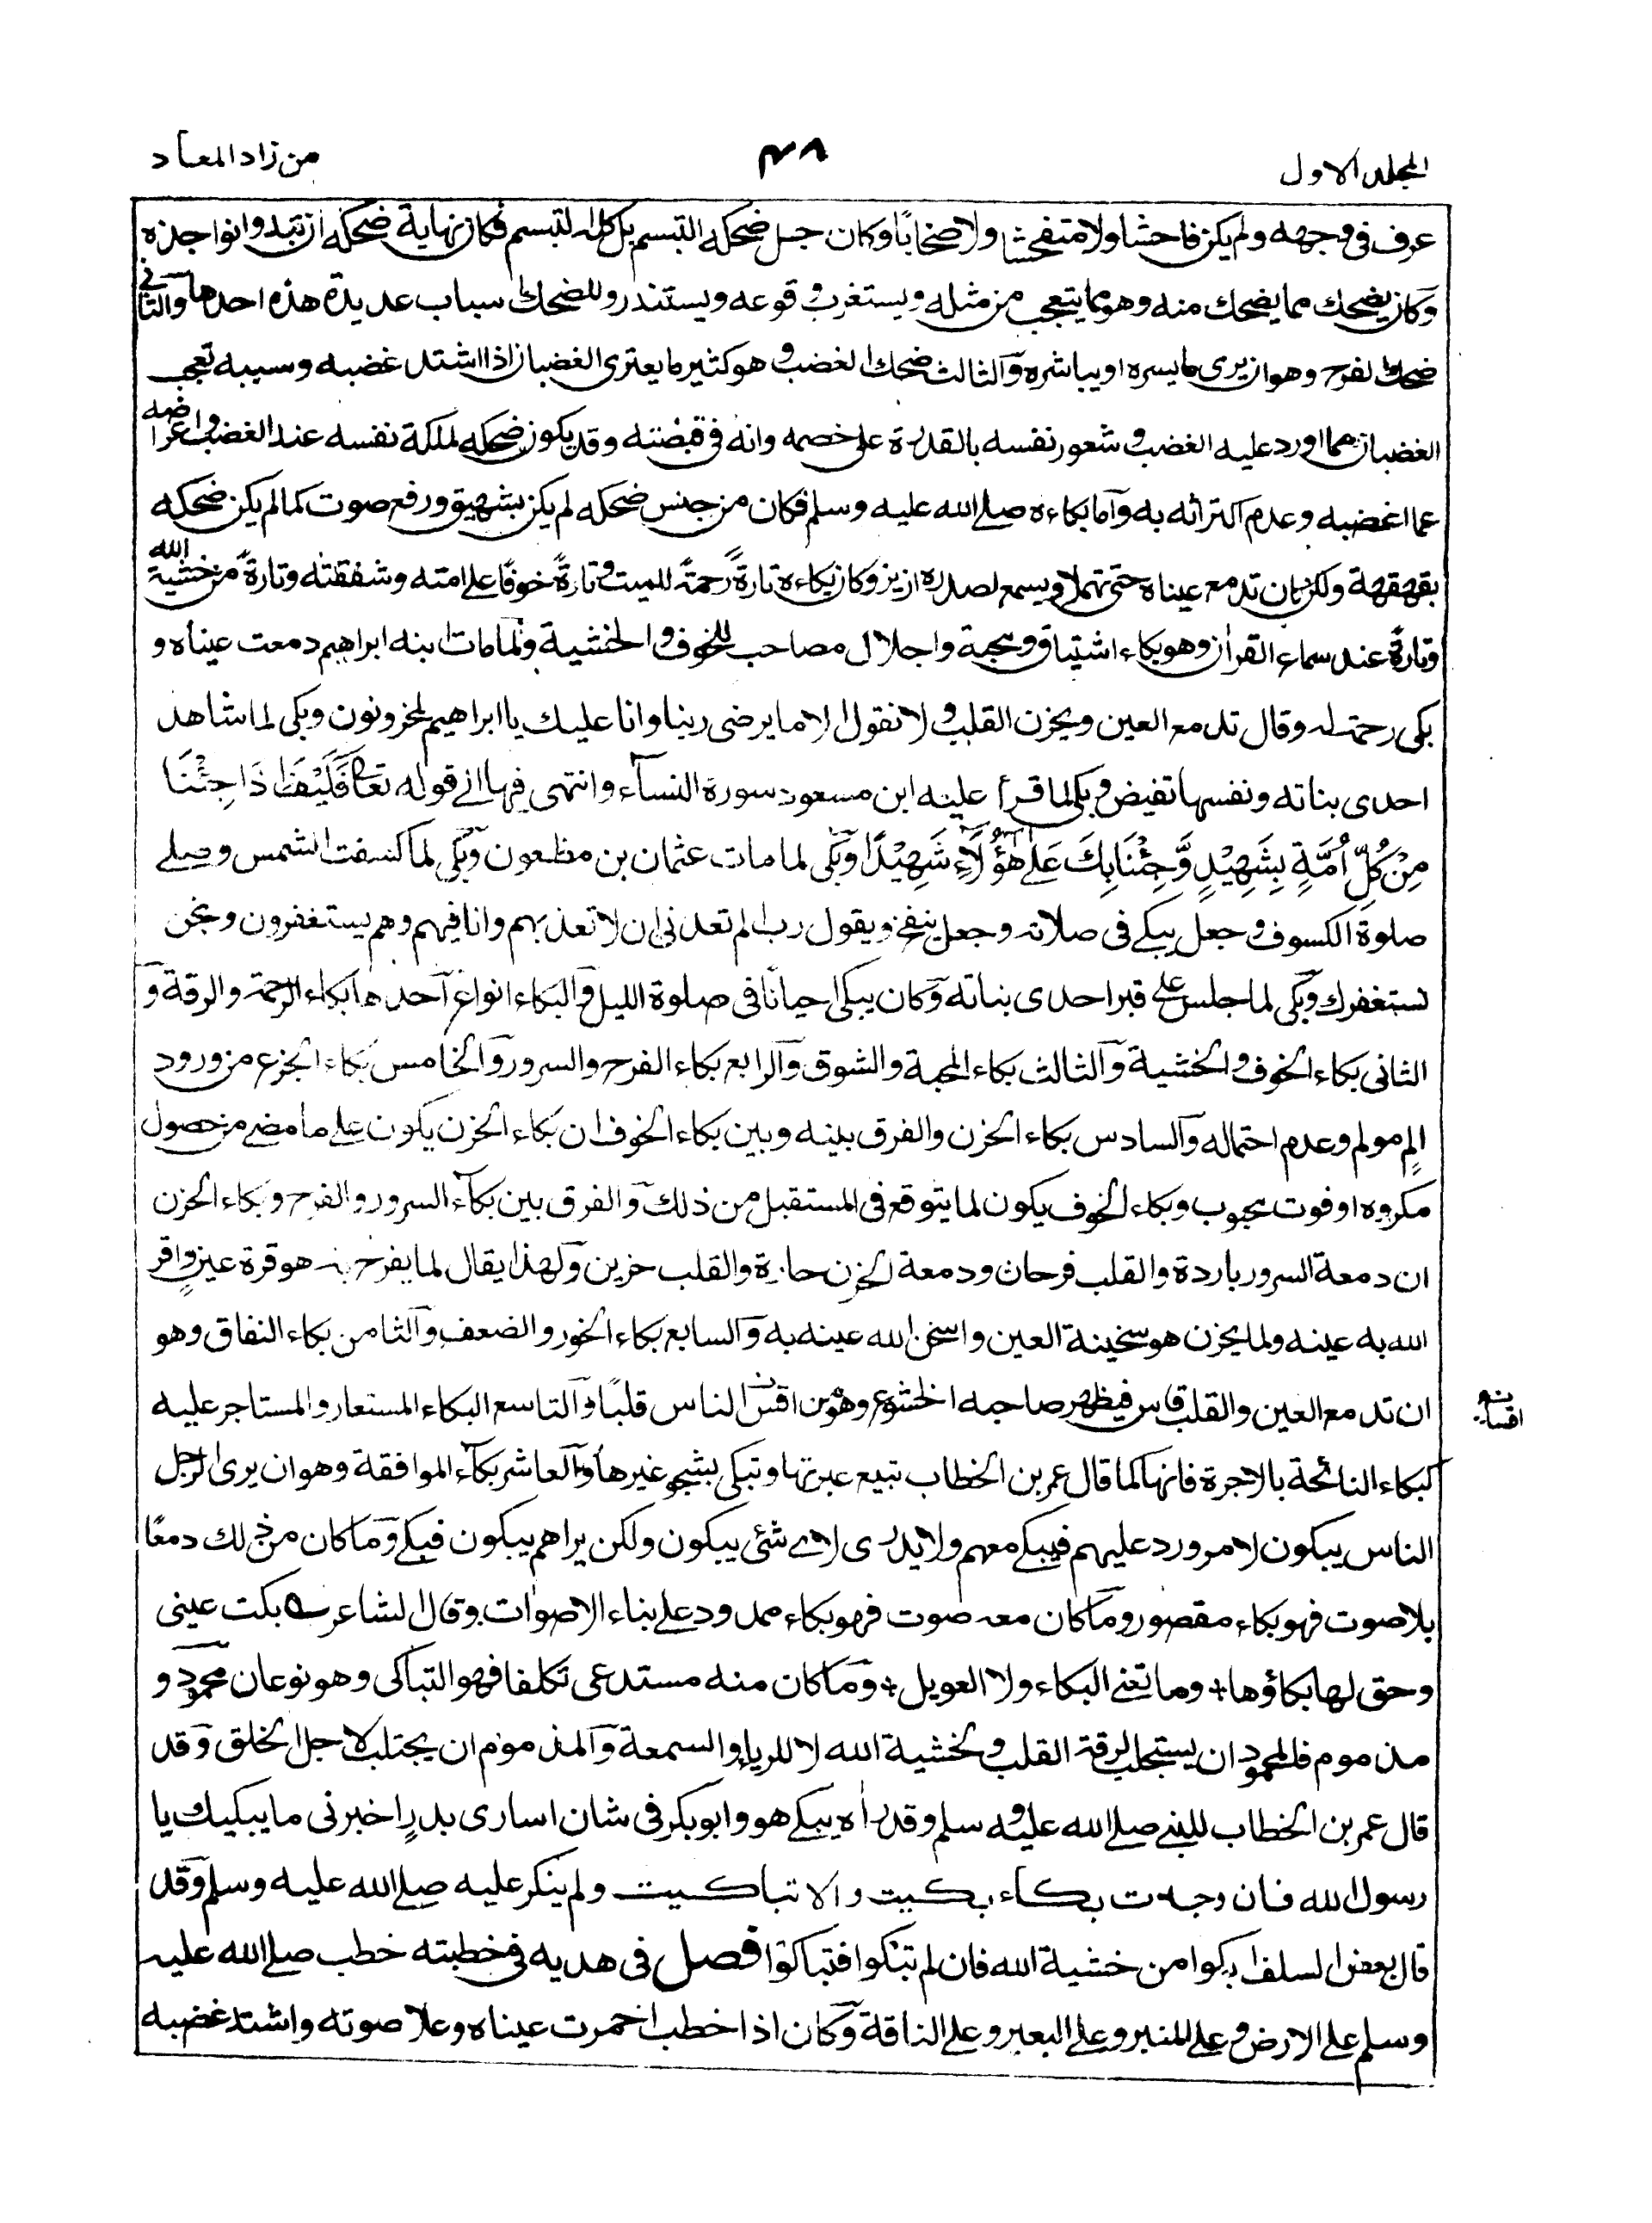 المجلد الاول
٤٨
من زاد المعاد
عرف فى وجهه ولم يكن فاحشا ولا متفحشا ولا صخابًا وكان جل ضحكه التبسم بل كله التبسم فكان نهاية ضحكه ان تبدوا نواجذه
وكان يضحك مما يضحك منه وهو مما يتعجب من مثله ويستغرب وقوعه ويستندر وللضحك اسباب عديدة هذه احدها والثانى
ضحك الفرح وهو ان يرى ما يسره او يباشره والثالث ضحك الغضب وهو كثير ما يعترى الغضبان اذا اشتد غضبه وسببه تعجب
الغضبان مما اورد عليه الغضب وشعور نفسه بالقدرة على خصمه وانه فى قبضته وقد يكون ضحكه لملكة نفسه عند الغضب واعراضه
عما اغضبه وعدم اكتراثه به وآما بكاءه صلى الله عليه وسلم فكان من جنس ضحكه لم يكن بشهيق ورفع صوت كما لم يكن ضحكه
بقهقهة ولكن كان تدمع عيناه حتى تهملا ويسمع لصدره ازيز وكان بكاءه تارةً رحمةً للميت وتارةً خوفًا على امته وشفقته وتارةً من خشية الله
وتارةً عند سماع القران وهو بكاء اشتياق ومحبة واجلال مصاحب للخوف والخشية ولما مات ابنه ابراهيم دمعت عيناه و
بكى رحمة له وقال تدمع العين ويحزن القلب ولا نقول الا ما يرضى ربنا وانا عليك يا ابراهيم لمحزونون وبكى لما شاهد
احدى بناته ونفسها تفيض وبكى لما قرأ عليه ابن مسعود سورة النسآء وانتهى فيها الى قوله تعالى فَكَيْفَ اِذَا جِئْنَا
مِنْ كُلِّ اُمَّةٍ بِشَهِيْدٍ وَّجِئْنَا بِكَ عَلٰى هٰٓؤُلَآءِ شَهِيْدًا وبكى لما مات عثمان بن مظعون وبكى لما كسفت الشمس وصلے
صلوة الكسوف وجعل يبكے فى صلاته وجعل ينفخ ويقول رب الم تعدنى ان لا تعذبهم وانا فيهم وهم يستغفرون ونحن
نستغفرك وبكى لما جلس على قبر احدى بناته وكان يبكى احيانًا فى صلوة الليل والبكاء انواع آحدها بكاء الرحمة والرقة وَ
الثانى بكاء الخوف والخشية وآلثالث بكاء المحبة والشوق وآلرابع بكاء الفرح والسرور وآلخامس بكاء الجزع من ورود
المٍ مولم وعدم احتماله وآلسادس بكاء الحزن والفرق بينه وبين بكاء الخوف ان بكاء الحزن يكون على ما مضے من حصول
مكروه او فوت محبوب وبكاء الخوف يكون لما يتوقع فى المستقبل من ذلك وَالفرق بين بكآء السرور والفرح وبكاء الحزن
ان دمعة السرور باردة والقلب فرحان ودمعة الحزن حارة والقلب حزين وَلهذا يقال لما يفرح به هو قرة عين واقر
الله به عينه ولما يحزن هو سخينة العين واسخن الله عينه به وآلسابع بكاء الخور والضعف وآلثامن بكاء النفاق وهو
ان تدمع العين والقلب قاس فيظهر صاحبه الخشوع وهو من اقسى الناس قلبًا وآلتاسع البكاء المستعار والمستاجر عليه
كبكاء النائحة بالاجرة فانها كما قال عمر بن الخطاب تبيع عبرتها وتبكى بشجو غيرها وآلعاشر بكآء الموافقة وهو ان يرى الرجل
الناس يبكون لامر ورد عليهم فيبكے معهم ولا يدرى لاے شئ يبكون ولكن يراهم يبكون فيبكے وَما كان من ذلك دمعًا
بلا صوت فهو بكاء مقصور وما كان معه صوت فهو بكاء ممدود على بناء الاصوات وقال الشاعر ؎ بكت عينى
وحق لها بكاؤها + وما يغنى البكاء ولا العويل + وَما كان منه مستدعى تكلفا فهو التباكى وهو نوعان محمود و
مذموم فالمحمود ان يستجلب لرقة القلب ولخشية الله لا للرياء والسمعة وآلمذموم ان يجتلب لاجل الخلق وَقد
قال عمر بن الخطاب للنبے صلے الله عليه وسلم وقد رأه يبكے هو وابو بكر فى شان اسارى بدرٍ اخبرنى ما يبكيك يا
رسول الله فان وجدت بكاء بكيت والا تباكيت ولم ينكر عليه صلے الله عليه وسلم وَقد
قال بعض السلف ابكوا من خشية الله فان لم تبكوا فتباكوا فصل فى هديه فى خطبته خطب صلے الله عليه
وسلم على الارض وعلے المنبر وعلے البعير وعلے الناقة وَكان اذا خطب احمرت عيناه وعلا صوته واشتد غضبه